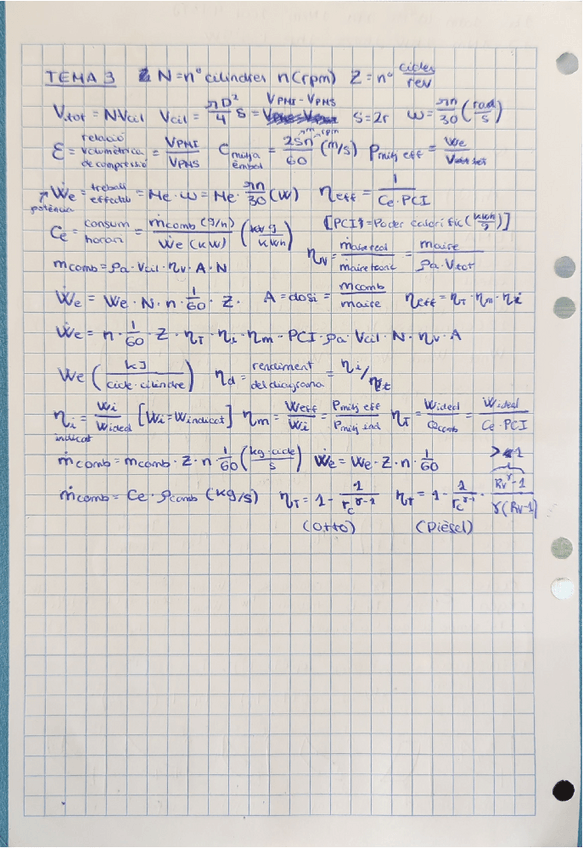 TEMA 3 N=nº cilindres n(rpm) Z=nº cicles/rev
V_tot = N V_cil V_cil = πD²/4 S = V_PMI - V_PMS S=2r ω = πn/30 (rad/s)
ε = relació volumètrica de compressió = V_PMI/V_PMS C_mitja èmbol = 2Sn/60 (m/s) P_mitj eff = We/V
Ẇe = treball effectiu = Me · ω = Me · πn/30 (W) η_eff = 1/(Ce·PCI)
potència
Ce = consum horari = ṁcomb (g/h)/Ẇe (kW) (kg/kWh) [PCI = Poder calorífic (kWh/)]
η_v = ṁaire real/ṁaire teòric = ṁaire/(ρa·V_tot)
mcomb = ρa · Vcil · η_v · A · N
Ẇe = We · N · n · 1/60 · Z. A = dosi = mcomb/maire η_eff = η_T · η_m · η_i
Ẇe = n · 1/60 · Z · η_T · η_i · η_m · PCI · ρa · Vcil · N · η_v · A
We (kJ/cicle·cilindre) η_d = rendiment del diagrama = η_i/η_t
η_i = Wi/Wideal [Wi = Windicat] η_m = Weff/Wi = Pmitj eff/Pmitj ind η_T = Wideal/Qcomb = Wideal/(Ce·PCI)
indicat
ṁcomb = mcomb · Z · n 1/60 (kg·cicle/s) Ẇe = We · Z · n · 1/60 >1
ṁcomb = Ce · ρcomb (kg/s) η_T = 1 - 1/rc^(γ-1) η_T = 1 - 1/rc^(γ-1) · (Rv^γ - 1)/(γ(Rv-1))
(Otto) (Dièsel)